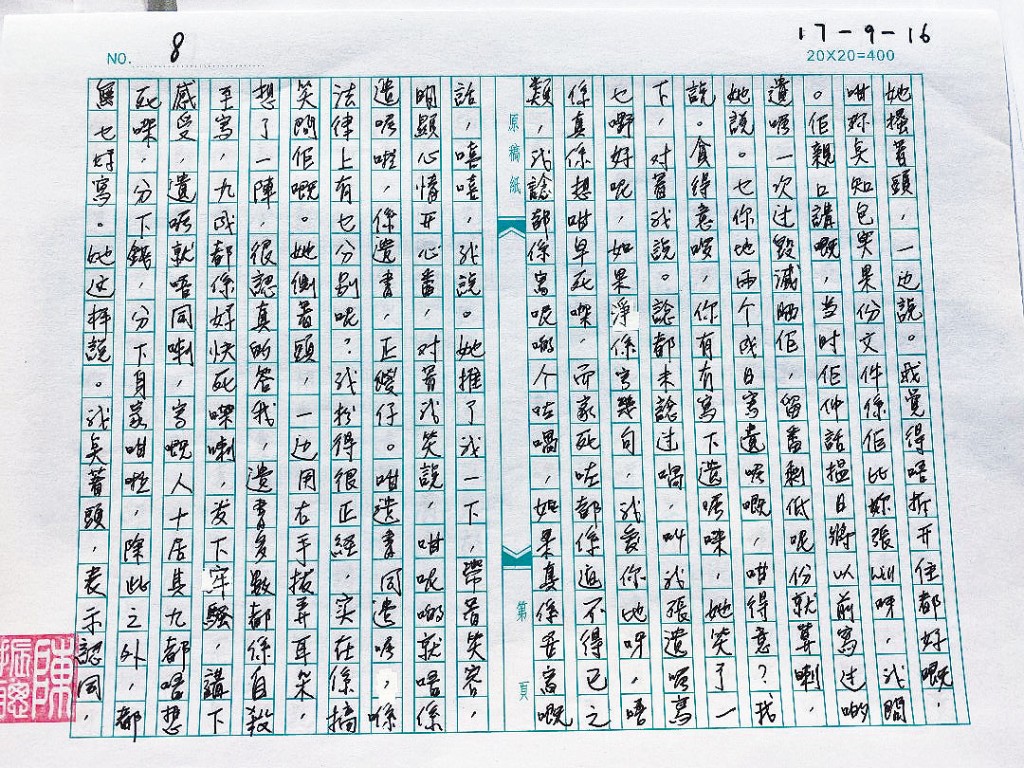 NO. 8
17-9-16
20X20=400
她搔着頭，一边說。我覺得唔拆开住都好嘅，
咁妳点知包突果份文件係佢比妳張will呀，我問
。佢親口講嘅，当时佢仲話搵日將以前寫过啲
遺唔一次过毀滅晒佢，留番剩低呢份就算喇，
她說。乜你地兩个成日寫遺唔嘅，咁得意？我
說。貪得意啰，你有有寫下遺唔㗎，她笑了一
下，对着我說。諗都未諗过喎，叫我張遺唔寫
乜嘢好呢，如果淨係寫幾句，我爱你地呀，唔
係真係想咁早死㗎，而家死咗都係逼不得已之
類，我諗都係寫呢啲个咗喎，如果真係要寫嘅
原稿紙
第 頁
話，嘻嘻，我說。她推了我一下，帶着笑容，
明顯心情开心番，对着我笑說，咁呢啲就唔係
遺唔啦，係遺書，正傻仔。咁遺書同遺唔，喺
法律上有乜分别呢？我扮得很正経，实在係搞
笑問佢嘅。她側着頭，一边用右手拔弄耳朵，
想了一陣，很認真的答我，遺書多數都係自殺
至寫，九成都係好快死㗎喇，发下牢騷，講下
感受，遺唔就唔同喇，寫嘅人十居其九都唔想
死㗎，分下錢，分下身家咁啦，除此之外，都
無乜好寫。她这样說。我点着頭，表示認同，
陳振聰